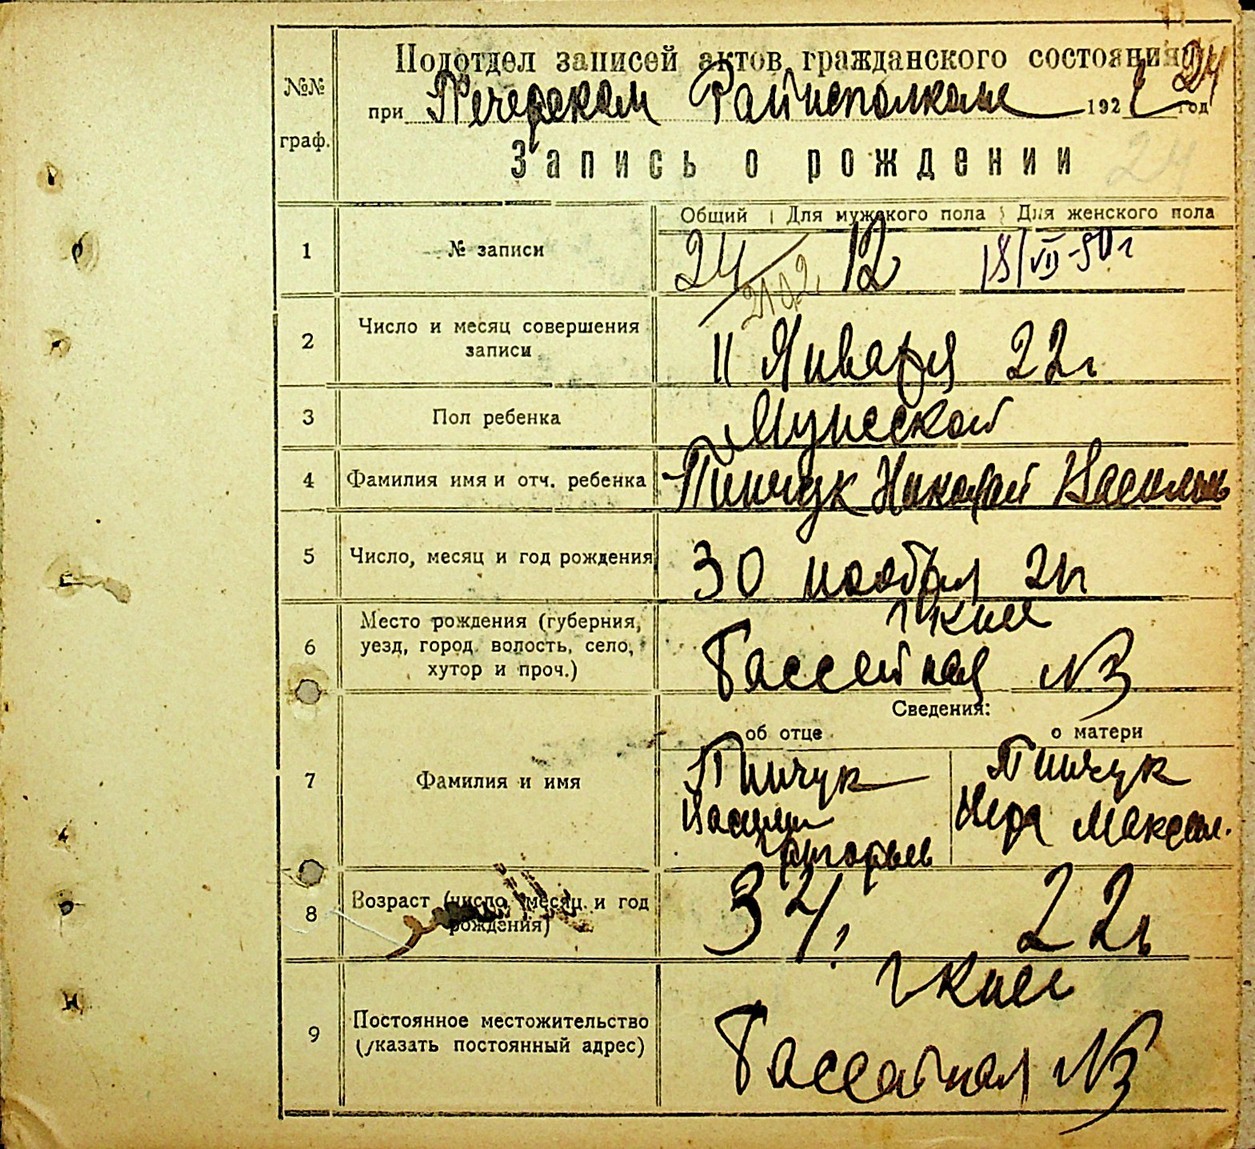 №№ граф.
Подотдел записей актов гражданского состояния
при Печерском Райисполкоме 1922 год
24
Запись о рождении
24
Общий Для мужского пола Для женского пола
1 № записи 24 12 18/VII-50 г
2 Число и месяц совершения записи 11 Января 22 г
3 Пол ребенка Мужеской
4 Фамилия имя и отч. ребенка Пинчук Николай Васильев
5 Число, месяц и год рождения 30 ноября 21 г
6 Место рождения (губерния, уезд, город, волость, село, хутор и проч.) г Киев
Бассейная № 3
Сведения:
об отце о матери
7 Фамилия и имя
Пинчук Пинчук
Васили Вера Максим.
Григорьев
8 Возраст (число, месяц и год рождения) 34 г 22 г
9 Постоянное местожительство (указать постоянный адрес) г Киев
Бассейная № 3